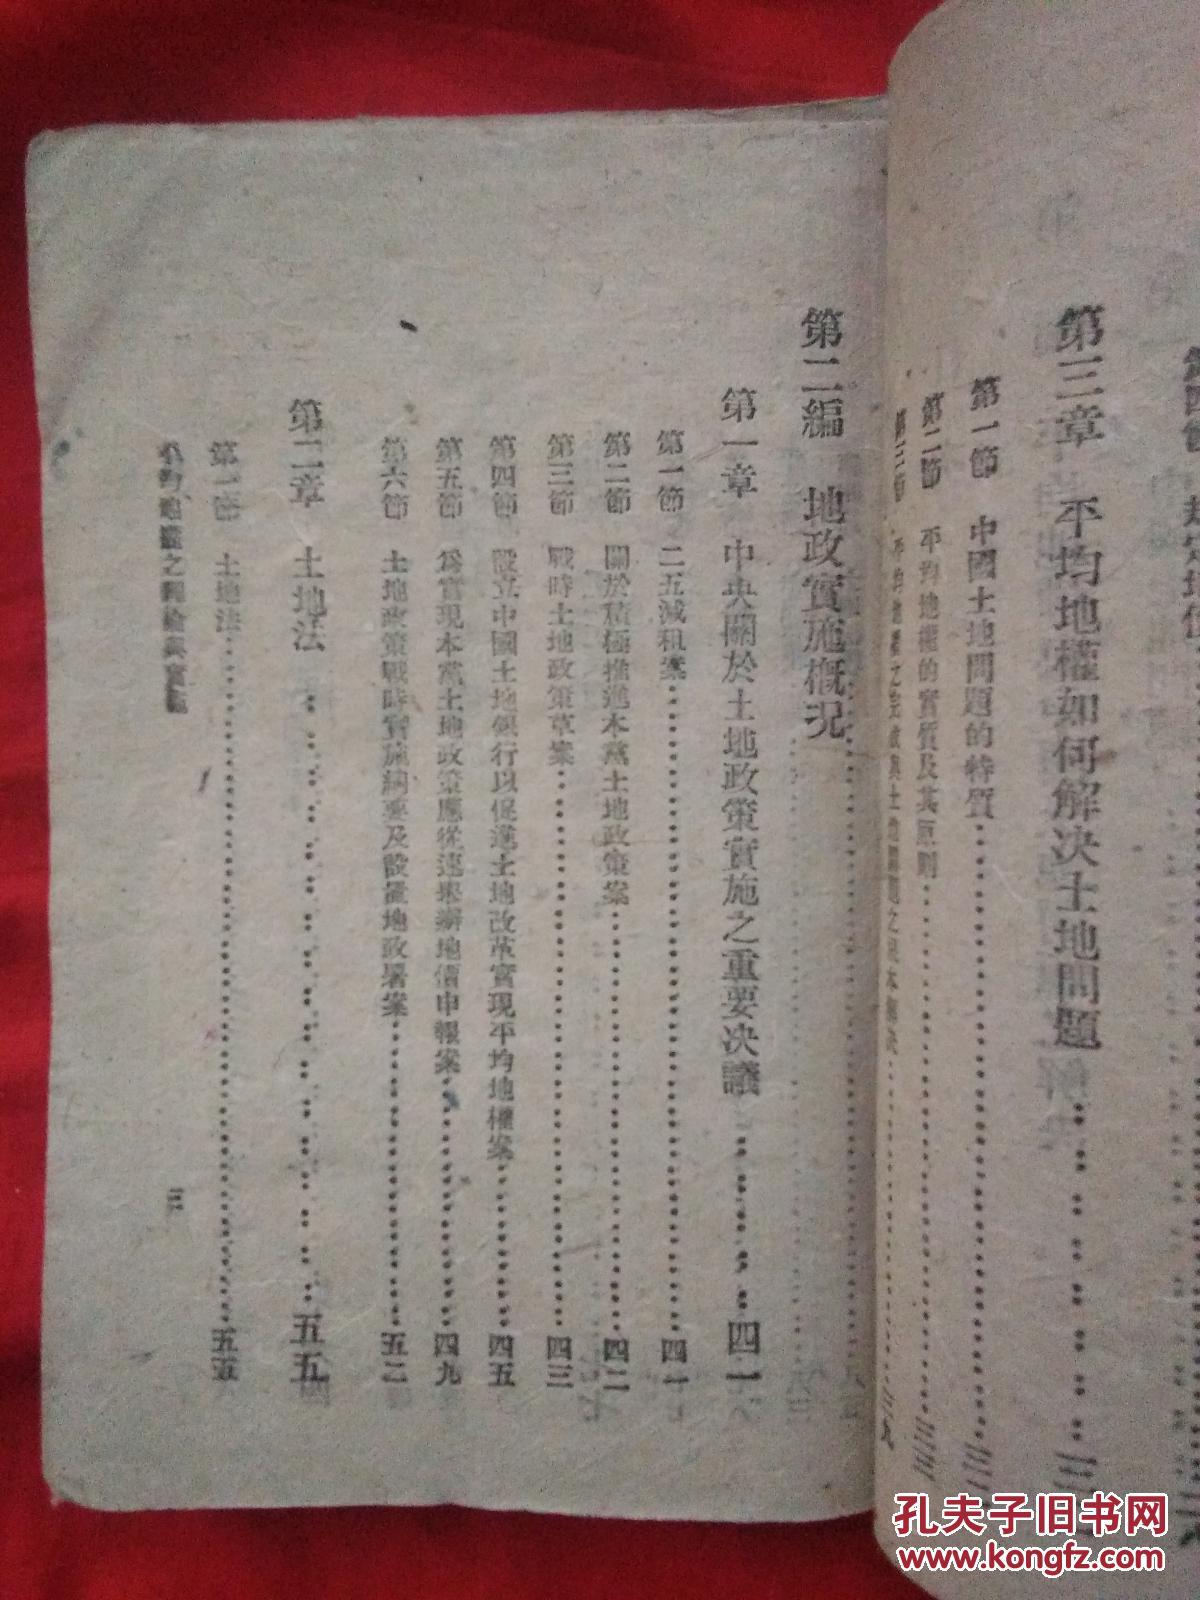 第四節
第三章　平均地權如何解决土地問題
第一節　中國土地問題的特質
第二節　平均地權的實質及其原則
第三節　平均地權之
第二編　地政實施概況
第一章　中央關於土地政策實施之重要决議……四一
第一節　二五減租案……四一
第二節　關於積極推進本黨土地政策案……四二
第三節　戰時土地政策草案……四三
第四節　設立中國土地銀行以促進土地改革實現平均地權案……四五
第五節　爲實現本黨土地政策應從速舉辦地價申報案……四九
第六節　土地政策戰時實施綱要及設置地政署案……五二
第二章　土地法……五五
第一節　土地法……五五
平均地權之理論與實施
三
孔夫子旧书网
www.kongfz.com